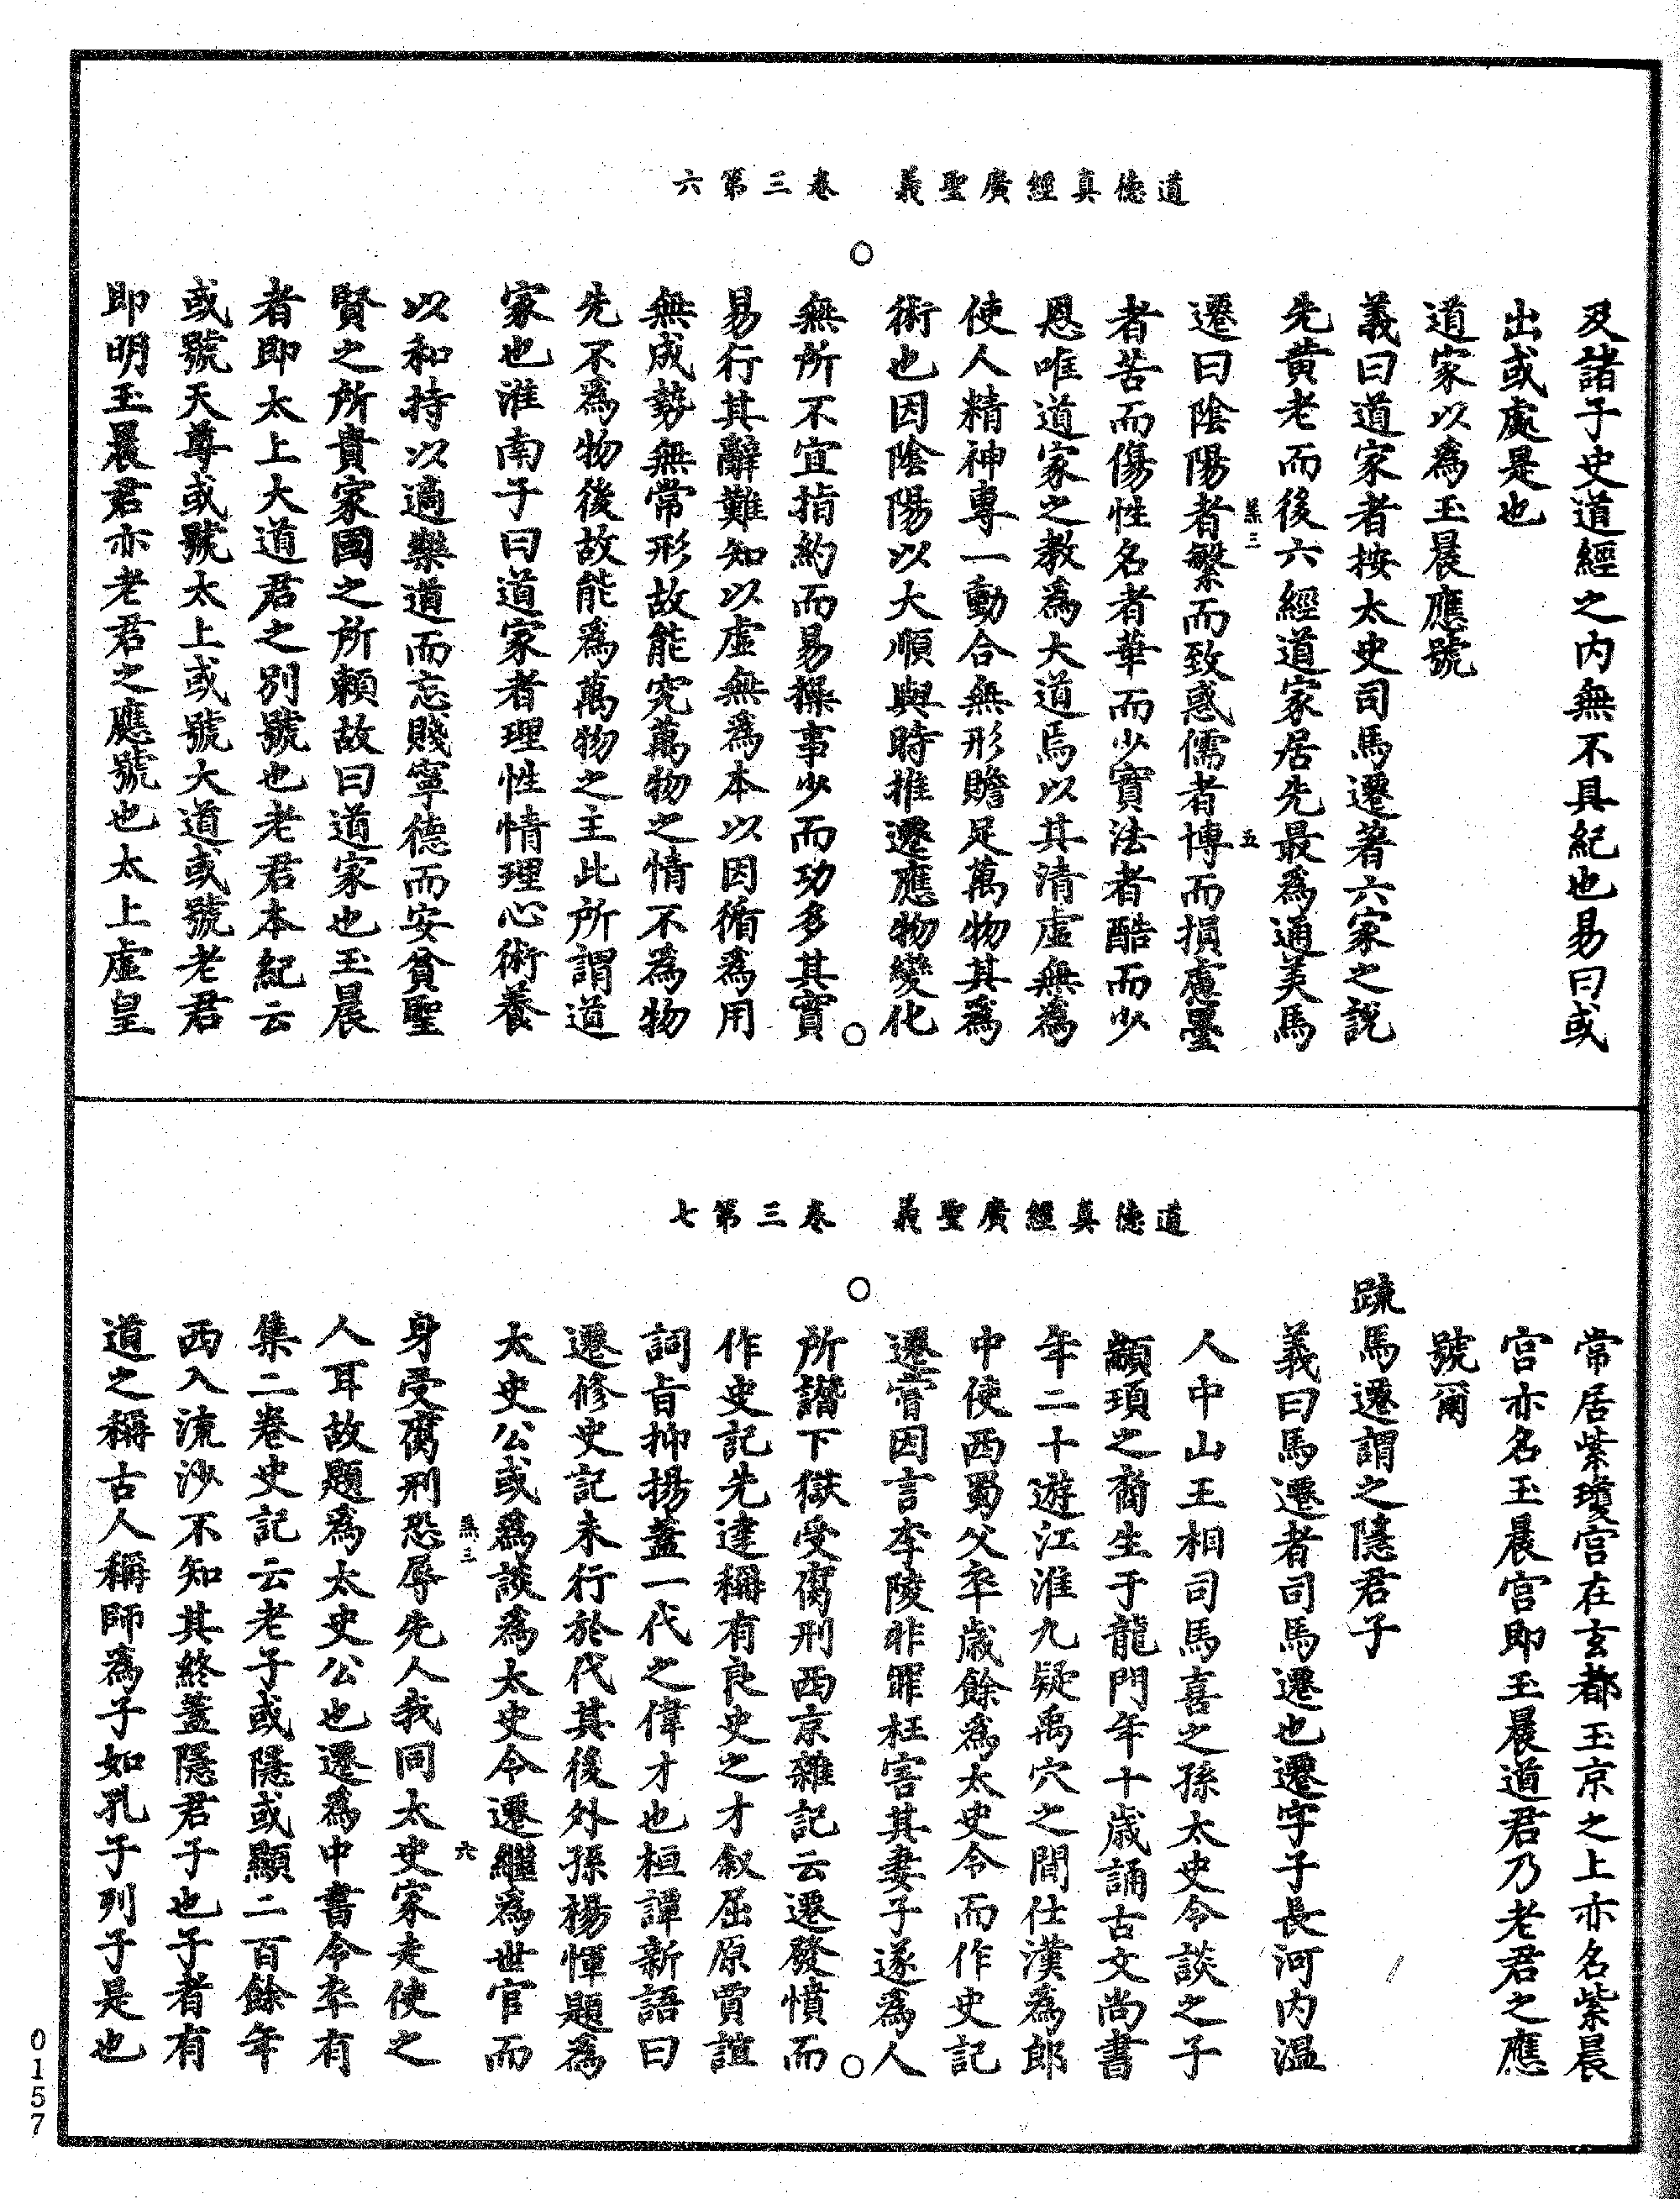 道德真經廣聖義　卷三第六
及諸子史道經之內無不具紀也易曰或
出或處是也
道家以為玉晨應號
義曰道家者按太史司馬遷著六家之說
先黃老而後六經道家居先最為通美馬
羔三　五
遷曰陰陽者繫而致惑儒者博而損慮墨
者苦而傷性名者華而少實法者酷而少
恩唯道家之教為大道焉以其清虛無為
使人精神專一動合無形贍足萬物其為
術也因陰陽以大順與時推遷應物變化
無所不宜指約而易操事少而功多其實
易行其辭難知以虛無為本以因循為用
無成勢無常形故能究萬物之情不為物
先不為物後故能為萬物之主此所謂道
家也淮南子曰道家者理性情理心術養
以和持以適樂道而忘賤寧德而安貧聖
賢之所貴家國之所賴故曰道家也玉晨
者即太上大道君之別號也老君本紀云
或號天尊或號太上或號大道或號老君
即明玉晨君亦老君之應號也太上虛皇
道德真經廣聖義　卷三第七
常居紫瓊宮在玄都玉京之上亦名紫晨
宮亦名玉晨宮即玉晨道君乃老君之應
號爾
疏馬遷謂之隱君子
義曰馬遷者司馬遷也遷字子長河內溫
人中山王相司馬喜之孫太史令談之子
顓頊之裔生于龍門年十歲誦古文尚書
年二十遊江淮九疑禹穴之間仕漢為郎
中使西蜀父卒歲餘為太史令而作史記
遷嘗因言李陵非罪枉害其妻子遂為人
所譖下獄受腐刑西京雜記云遷發憤而
作史記先達稱有良史之才敘屈原賈誼
詞旨抑揚蓋一代之偉才也桓譚新語曰
遷修史記未行於代其後外孫楊惲題為
太史公或為談為太史令遷繼為世官而
羔三　六
身受腐刑恐辱先人我同太史家走使之
人耳故題為太史公也遷為中書令卒有
集二卷史記云老子或隱或顯二百餘年
西入流沙不知其終蓋隱君子也子者有
道之稱古人稱師為子如孔子列子是也
0157